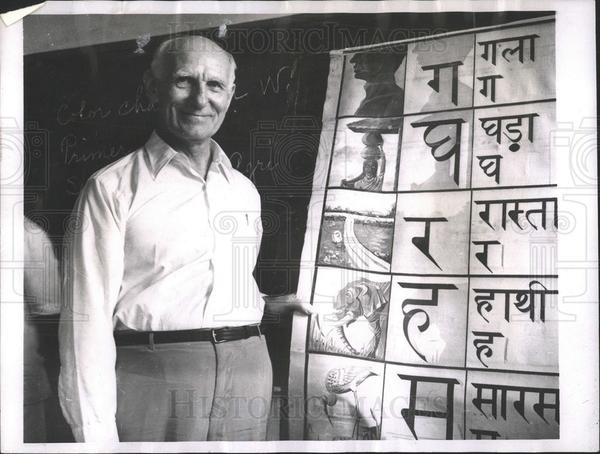 HISTORIC IMAGES
Color cha
Prime
ग
गला
ग
घ
घड़ा
घ
र
रास्ता
र
ह
हाथी
ह
स
सारस
HISTORIC IMAGES